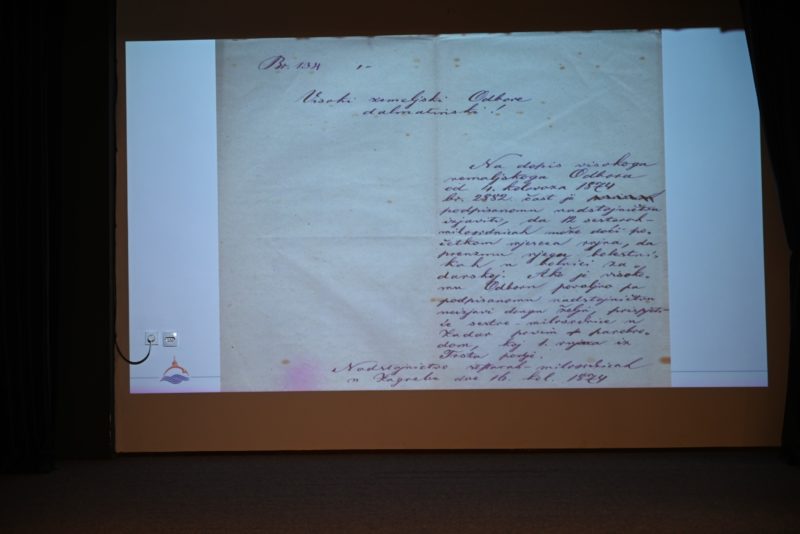 Br. 134
Visoki zemeljski Odbore
dalmatinski!
Na dopis visokoga
zemaljskoga Odbora
od 4. kolovoza 1874
br. 2882. čast je
podpisanomu nadstojničtvu
izjaviti, da 12 sestarah-
milosrdnicah može doći po-
četkom mjeseca rujna, da
preuzmu njegu bolestni-
kah u bolnici za-
darskoj. Ako je visoko-
mu Odboru povoljno pa
podpisanomu nadstojničtvu
neizjavi drugu želju, prispjeti
će sestre-milosrdnice u
Zadar prvim parobro-
dom, koj 1. rujna iz
Trsta podje.
Nadstojničtvo sestarah-milosrdnicah
u Zagrebu dne 16. kol. 1874